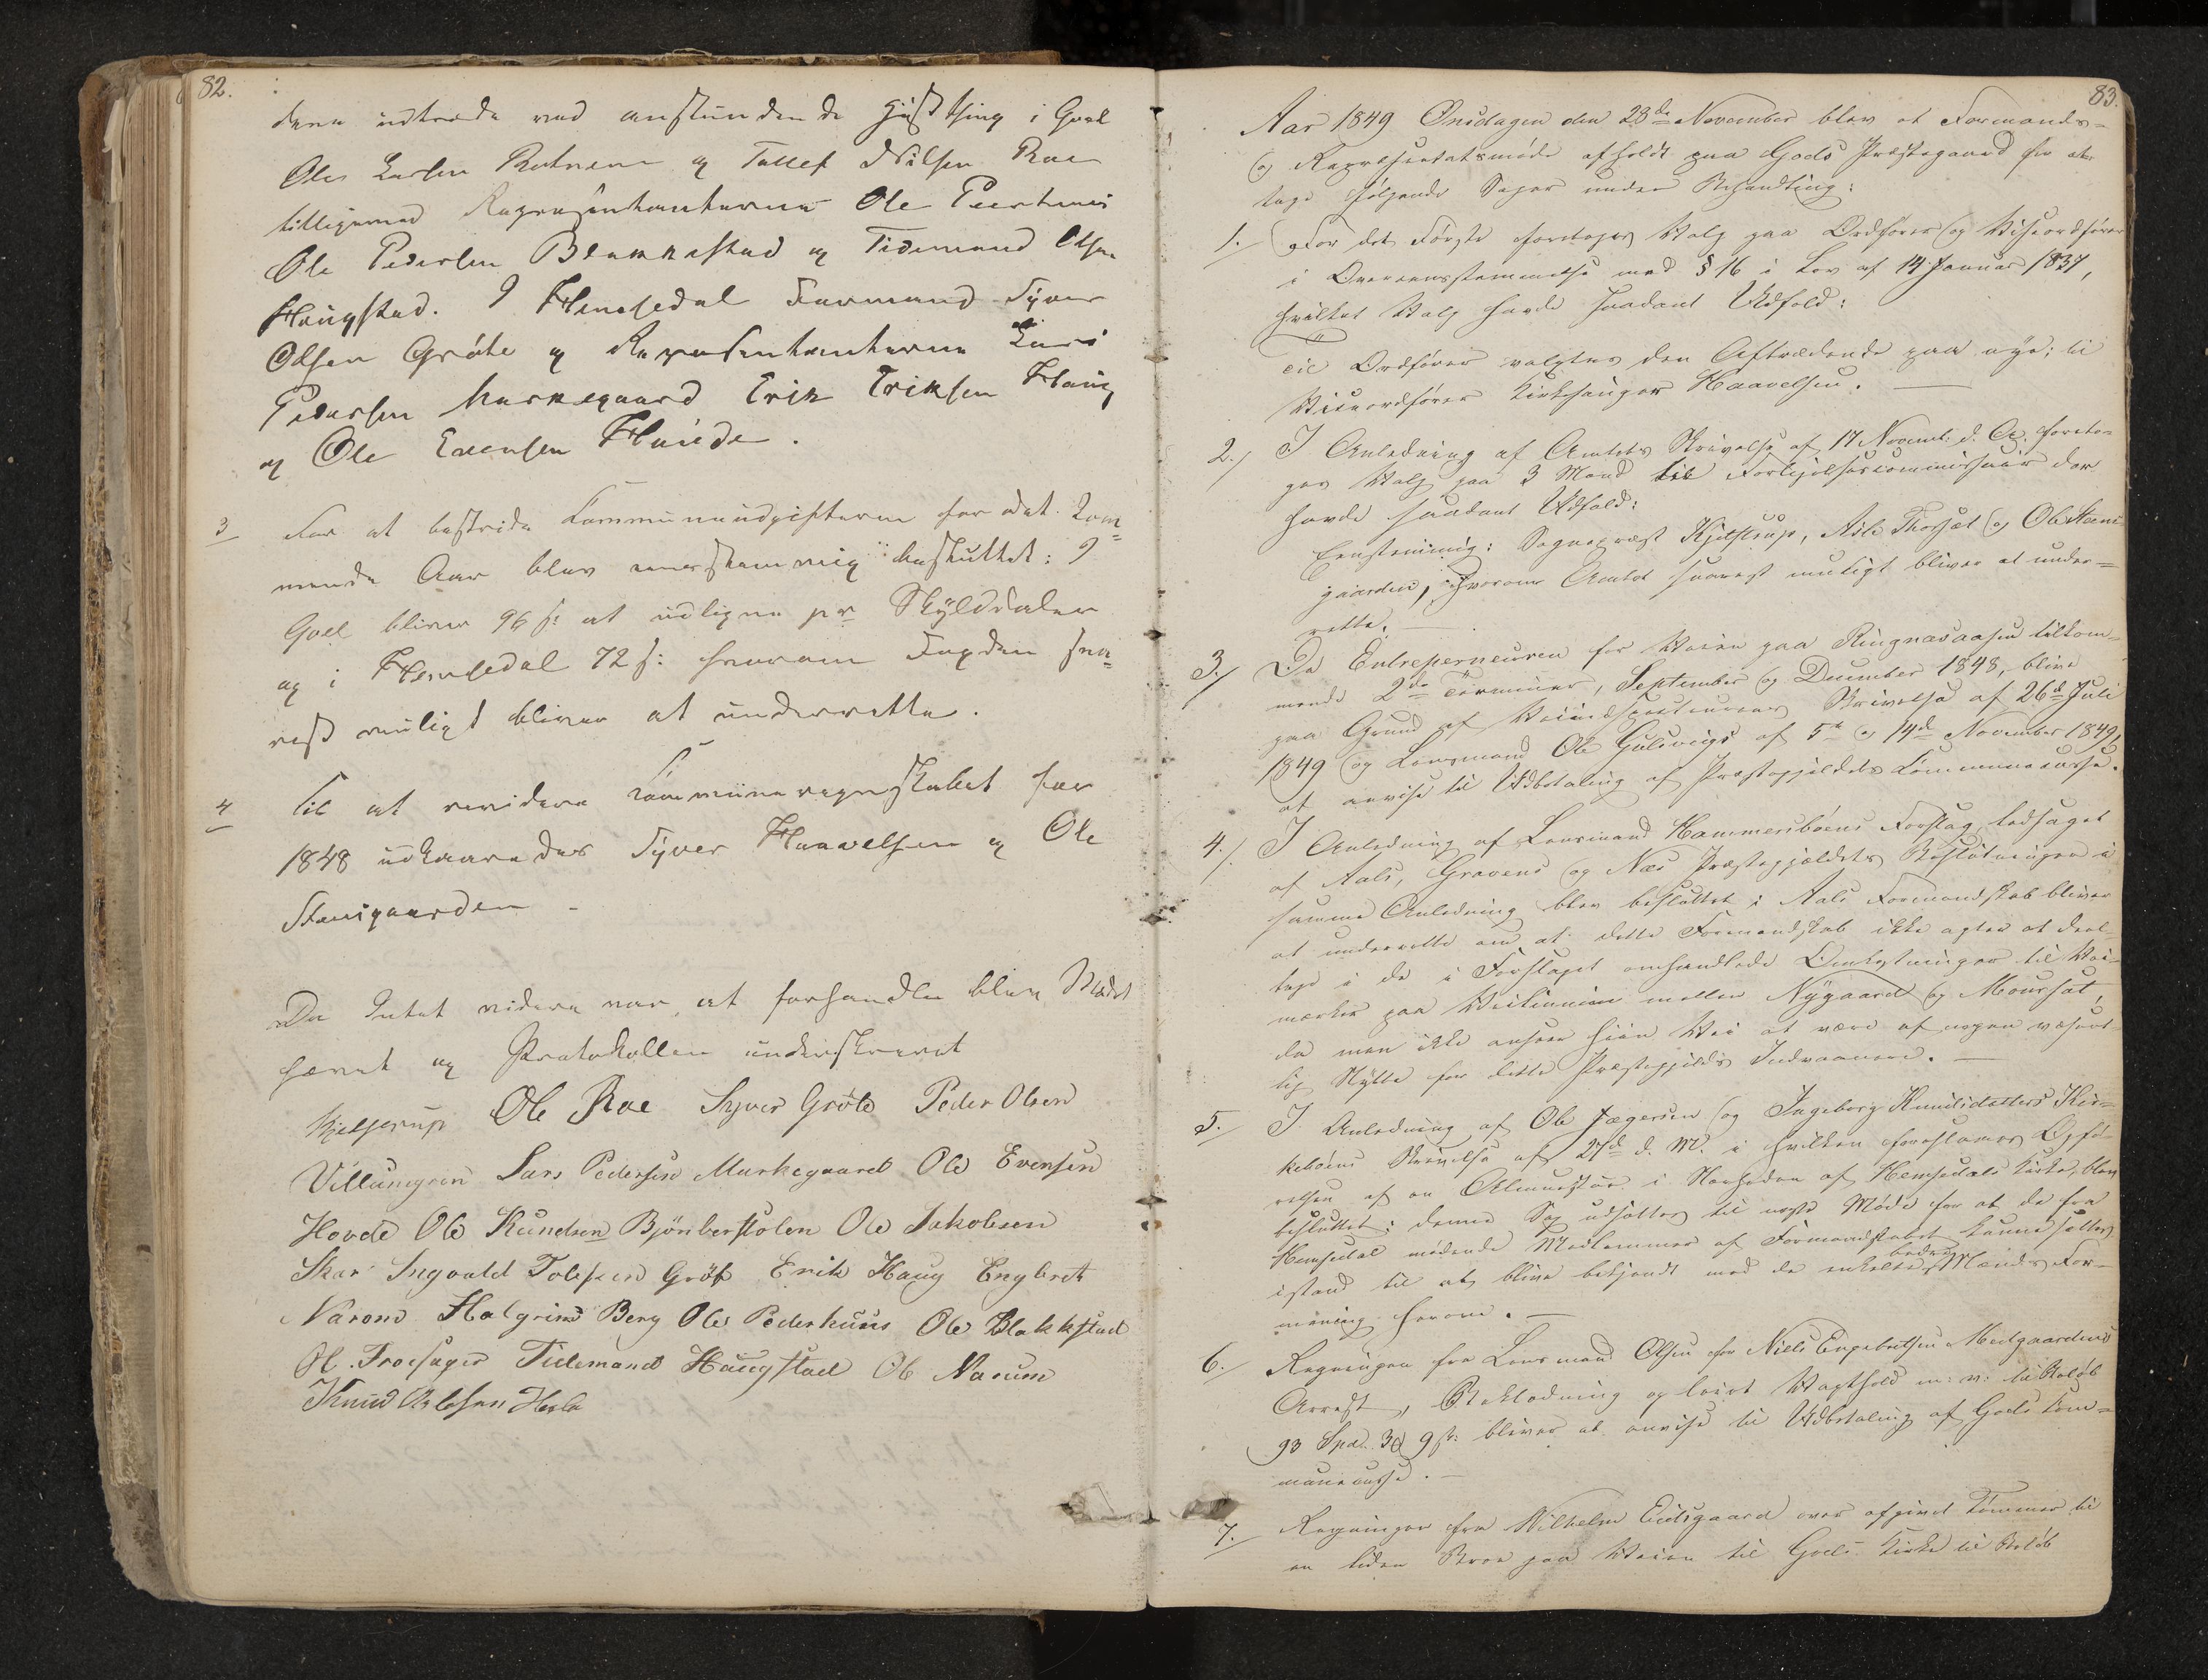 82.
dere udtræde ved anstundende Høstthing i Goel
Ole Larsen Rotnem og Tollef Nilsen Roe
tilligemed Repræsentanterne Ole Pedershuus
Ole Pedersen Blakkestad og Tidemand Olsen
Haugstad. I Hemsedal Formand Syver
Olsen Grøte og Repræsentanterne Lars
Pedersen Markegaard Erik Eriksen Haug
og Ole Evensen Huide.
3 For at bestride Communeudgifterne for det kom=
mende Aar blev eenstemmig besluttet: I
Goel bliver 96 s: at udligne pr Skylddaler
og i Hemsedal 72 s: hvorom Fogden sna=
rest muligt bliver at underrette.
4 Til at revidere Communeregnskabet for
1848 udkaaredes Syver Haavelsen og Ole
Stensgaarden –
Da Intet videre var at forhandle blev Mødet
hævet og Protokollen underskrevet
Kjelstrup Ole Roe Syver Grøte Peder Olsen
Villumgren Lars Pedersen Markegaard Ole Evensen
Hovde Ole Knudsen Bjönberstolen Ole Jakobsen
Skar Ingvald Tolefsen Gröt Erik Haug Engbret
Narom Halgrim Berg Ole Pedershuus Ole Blakkstad
H. Troesager Tidemand Haugstad Ole Narum
Knud Olesen Hesla
83.
Aar 1849 Onsdagen den 28de November blev et Formands=
og Repræsentatsmøde afholdt paa Goels Præstegaard for at
tage følgende Sager under Behandling:
1./ For det Første foretoges Valg paa Ordfører og Viseordfører
i Overeensstemmelse med § 16 i Lov af 14 Januar 1837,
hvilket Valg havde saadant Udfald:
Til Ordfører valgtes den Aftrædende paa nye; til
Viseordfører Kirkesanger Haavelsen. —
2./ I Anledning af Amtets Skrivelse af 17 Novemb. d. A. foreto=
ges Valg paa 3 Mænd til Forligelsescommissair der
havde saadant Udfald:
Eenstemmig: Sognepræst Kjelstrup, Asle Thorset og Ole Stens
gaarden, hvorom Amtet snarest muligt bliver at under=
rette. —
3./ De Entreperneuren for Veien paa Ringnæsaasen tilkom=
mende 2de Terminer, September og December 1848, blive
paa Grund af Veiinspecteurens Skrivelse af 26de Juli
1849 og Lensmand Ole Gulsvigs af 5te og 14de November 1849,
at anvise til Udbetaling af Præstegjeldets Communecasse.
4./ I Anledning af Lensmand Hammersbøens Forslag ledsaget
af Aals, Gravens og Næs Præstegjældets Beslutninger i
samme Anledning blev besluttet: Aals Formandskab bliver
at underrette om at dette Formandskab ikke agter at deel=
tage i de i Forslaget omhandlede Omkostninger til Vei=
mærker paa Veilinien mellem Nygaard og Moursæt,
da man ikke anseer hiin Vei at være af nogen væsent=
lig Nytte for dette Præstegjelds Indvaanere. —
5./ I Anledning af Ole Jægersen og Ingeborg Knudsdatters Kir=
kebøens Skrivelse af 27de d. M. i hvilken foreslaaes Opfø=
relsen af en Almuestue i Nærheden af Hemsedals Kirke, blev
besluttet: denne Sag udsættes til næste Møde for at de fra
Hemsedal mødende Medlemmer af Formandskabet kunne sættes
istand til at blive bekjendt med de enkelte bedre Mænds For=
mening herom. —
6./ Regningen fra Lensmand Olsen for Niels Engebretsen Medgaardens
Arrest, Beklædning og leiet Vagthold m: v: til Beløb
93 Spd. 3 9 s: bliver at anvise til Udbetaling af Goels Com=
munecasse. —
7./ Regningen fra Wilhelm Eidsgaard over afgivet Tømmer til
en liden Broe paa Veien til Goels Kirke til Beløb